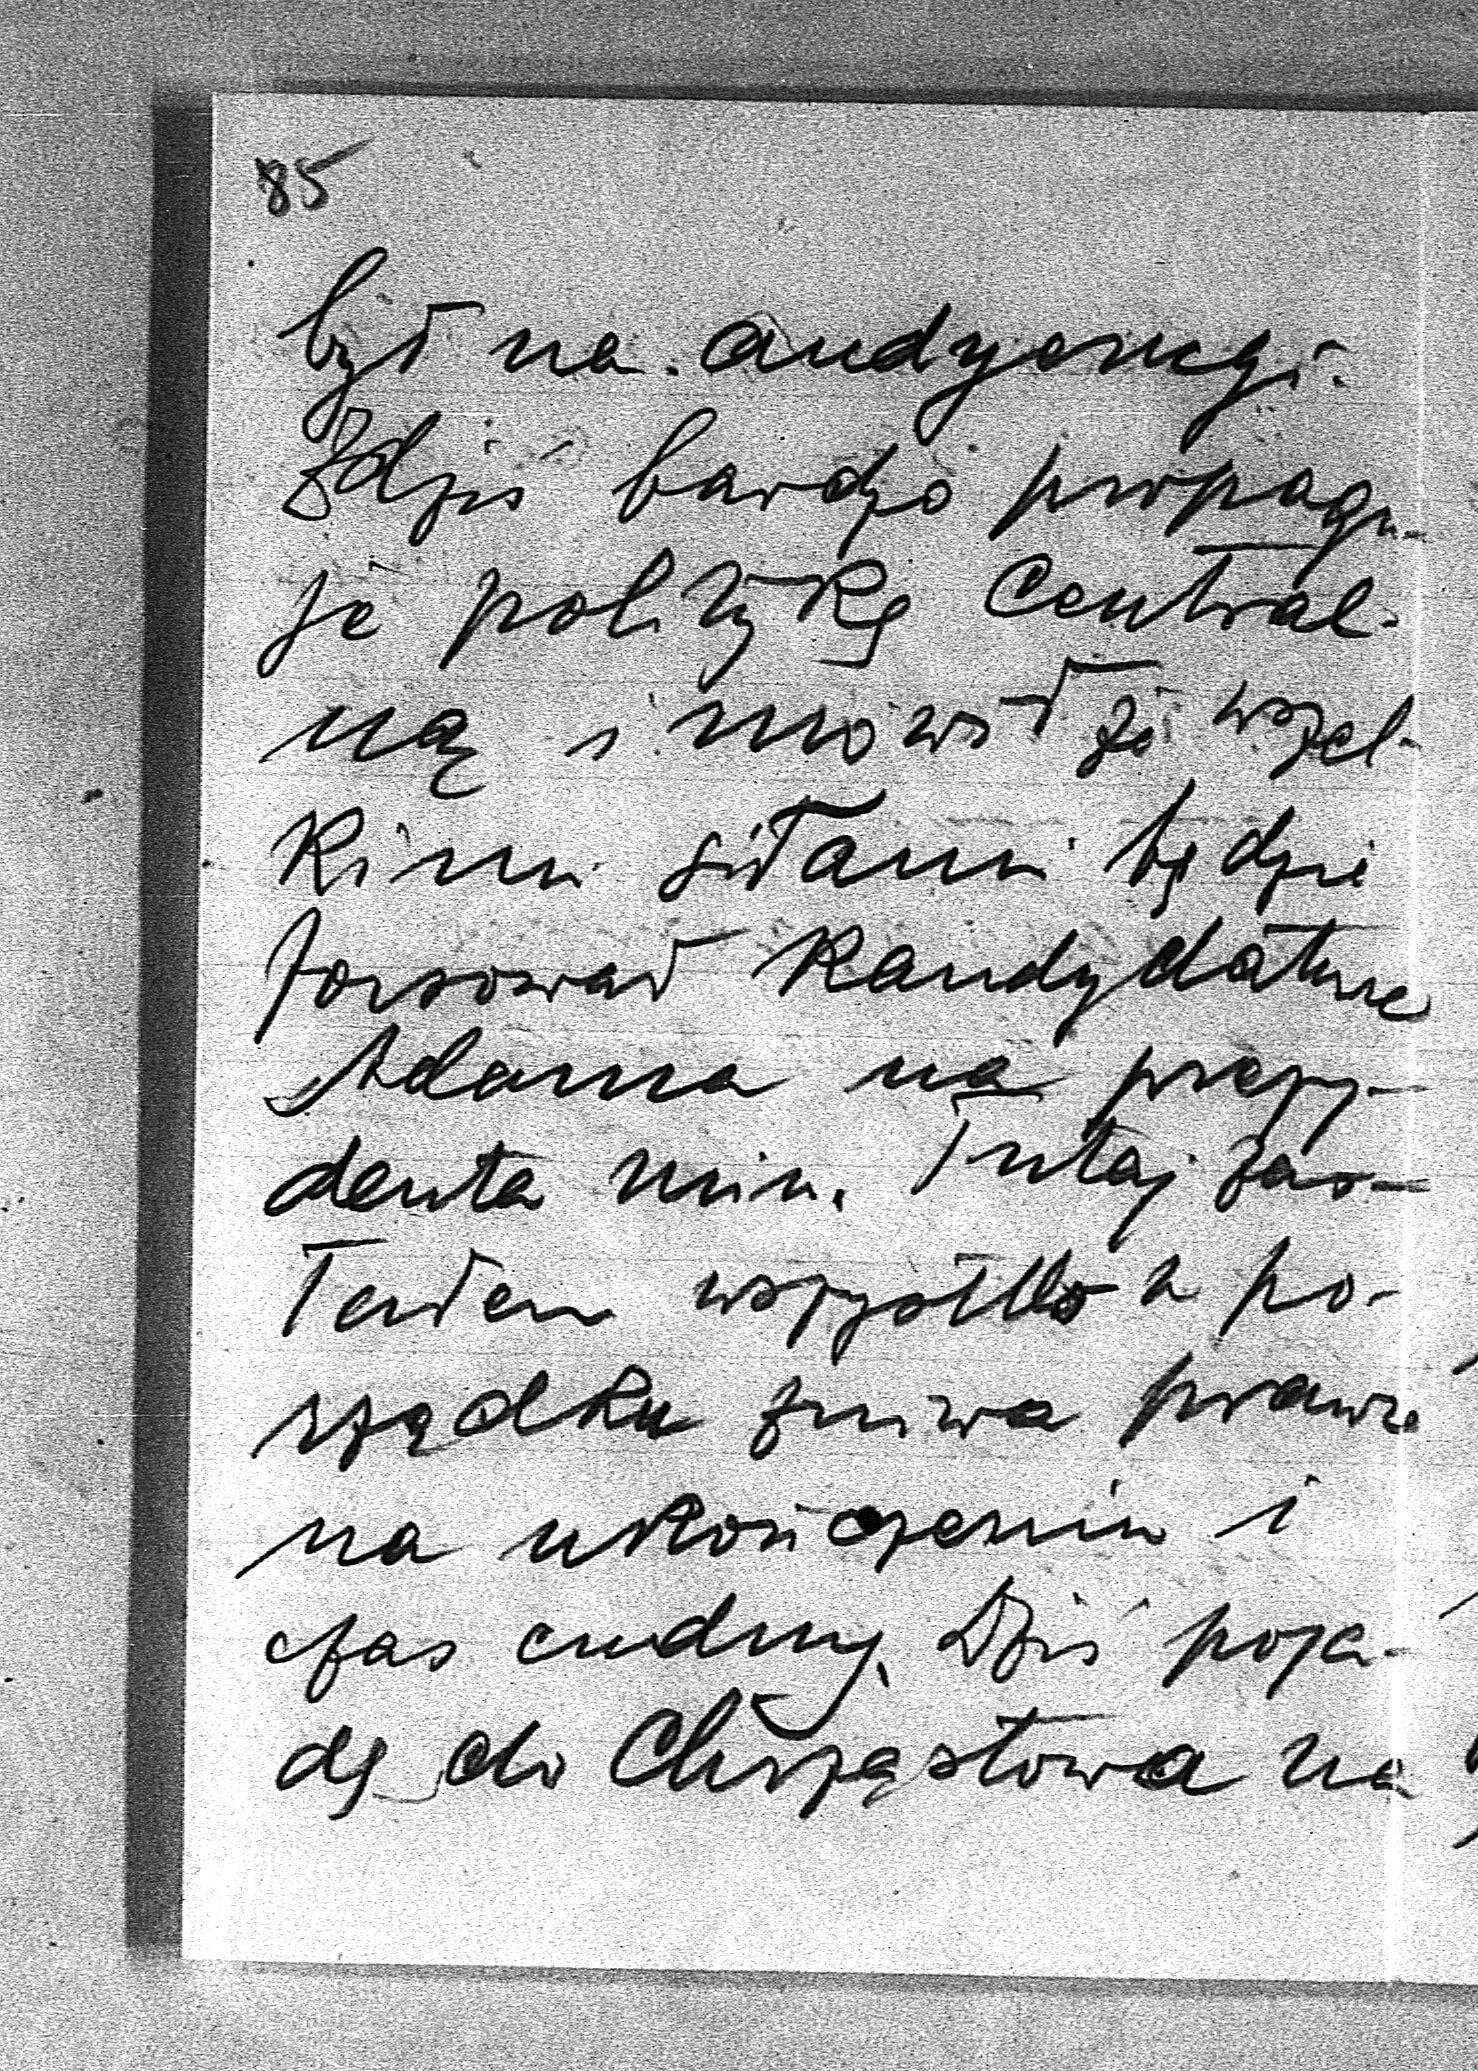 85
był na audyencyi.
Zdziś bardzo propagu-
je politykę Central-
ną i mówił że wszel-
kimi siłami będzie
forsował kandydaturę
Adama na prezy-
denta min. Tutaj zas-
tałem wszystko w po-
rządku żniwa prawie
na ukończeniu i
czas cudny. Dziś poja-
dę do Chrząstowa na